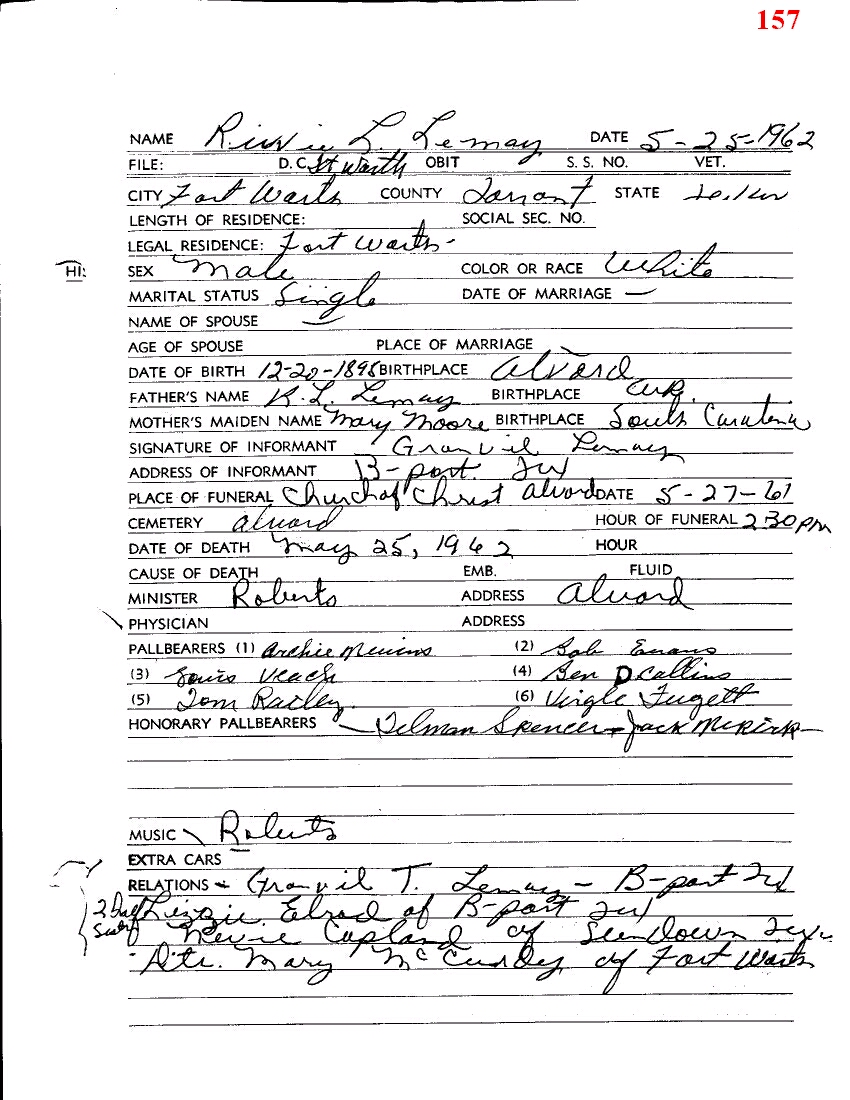 157
NAME L. Lemay DATE 5-25-1962
FILE: D.C. Ft Warth OBIT S. S. NO. VET.
CITY Fort Warth COUNTY Tarrant STATE
LENGTH OF RESIDENCE: SOCIAL SEC. NO.
LEGAL RESIDENCE: Fort Warth -
HI: SEX Male COLOR OR RACE White
MARITAL STATUS Single DATE OF MARRIAGE —
NAME OF SPOUSE —
AGE OF SPOUSE PLACE OF MARRIAGE
DATE OF BIRTH 12-20-1898 BIRTHPLACE Alvord
FATHER'S NAME R. L. Lemay BIRTHPLACE Ark.
MOTHER'S MAIDEN NAME Mary Moore BIRTHPLACE South Carolina
SIGNATURE OF INFORMANT Granvil Lemay
ADDRESS OF INFORMANT B-port
PLACE OF FUNERAL Church of Christ Alvord DATE 5-27-61
CEMETERY Alvord HOUR OF FUNERAL 2:30 PM
DATE OF DEATH May 25, 1962 HOUR
CAUSE OF DEATH EMB. FLUID
MINISTER Roberts ADDRESS Alvord
PHYSICIAN ADDRESS
PALLBEARERS (1) Archie (2) Bob Evans
(3) Louis Veach (4) Ben D Collins
(5) Tom Railey (6) Virgle Fugett
HONORARY PALLBEARERS — Tilman Spencer - Jack
MUSIC Roberts
EXTRA CARS —
RELATIONS - Granvil T. Lemay - B-port
2 Lizzie Elrod of B-port
Copland of Sundown
Mary McCurdy of Fort Warth